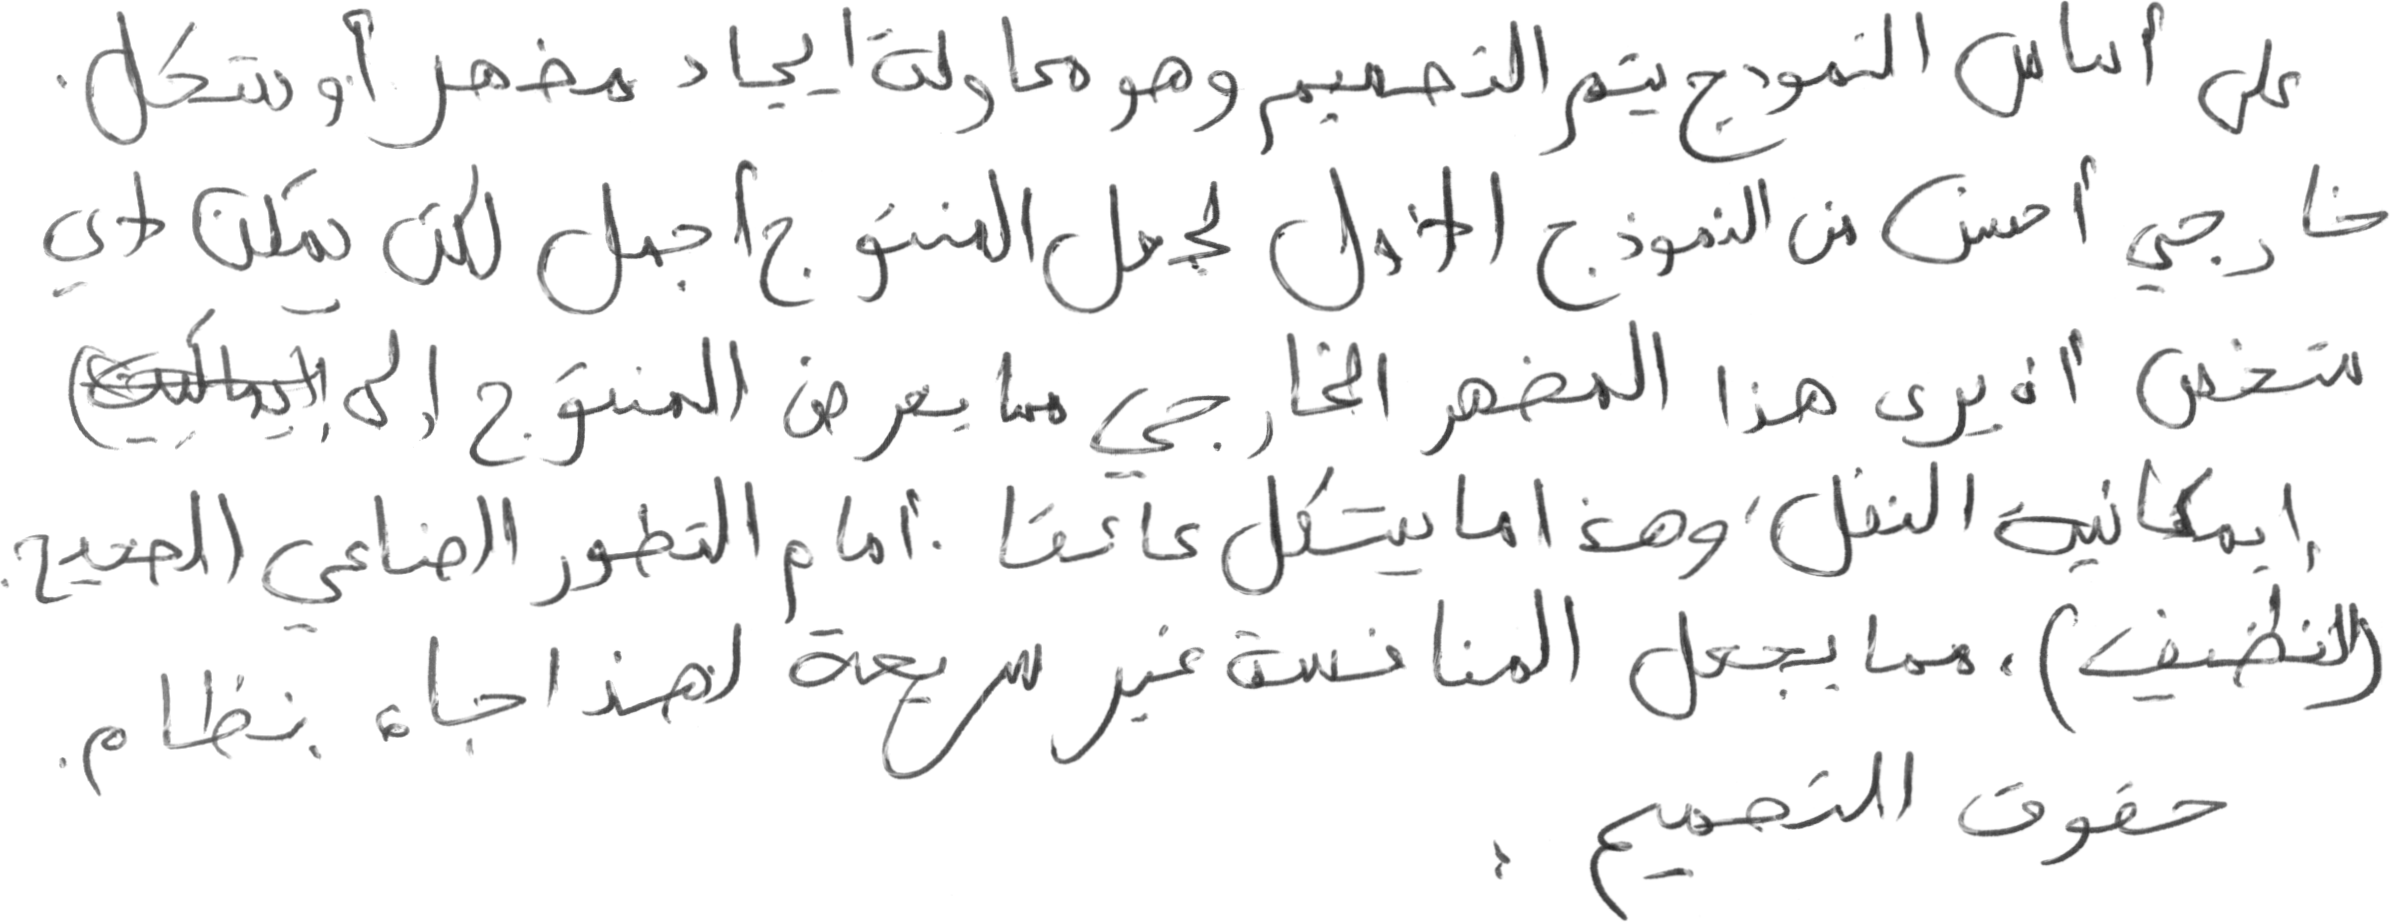 على أساس النموذج يتم التصميم وهو محاولة ايجاد مضهر أو شكل.
خارجي أحسن من النموذج الاول لجعل المنتوج أجمل لكن يمكن لاي
شخص أن يرى هذا المضهر الخارجي مما يعرض المنتوج إلى
إيمكانية النقل، وهذا ما يشكل عائقا. أمام التطور الصناعي (الصحيح.
(النظيف)، مما يجعل المنافسة غير سريعة لهذا جاء نظام.
حقوق التصميم: